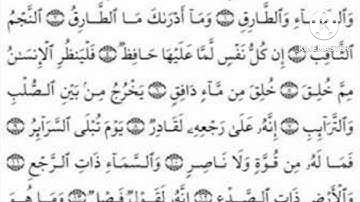 وَالسَّمَآءِ وَالطَّارِقِ ۝ وَمَآ أَدْرَىٰكَ مَا الطَّارِقُ ۝ النَّجْمُ
الثَّاقِبُ ۝ إِن كُلُّ نَفْسٍ لَّمَّا عَلَيْهَا حَافِظٌ ۝ فَلْيَنظُرِ الْإِنسَٰنُ
مِمَّ خُلِقَ ۝ خُلِقَ مِن مَّآءٍ دَافِقٍ ۝ يَخْرُجُ مِنۢ بَيْنِ الصُّلْبِ
وَالتَّرَآئِبِ ۝ إِنَّهُۥ عَلَىٰ رَجْعِهِۦ لَقَادِرٌ ۝ يَوْمَ تُبْلَى السَّرَآئِرُ ۝
فَمَا لَهُۥ مِن قُوَّةٍ وَلَا نَاصِرٍ ۝ وَالسَّمَآءِ ذَاتِ الرَّجْعِ ۝
وَالْأَرْضِ ذَاتِ الصَّدْعِ ۝ إِنَّهُۥ لَقَوْلٌ فَصْلٌ ۝ وَمَا هُوَ